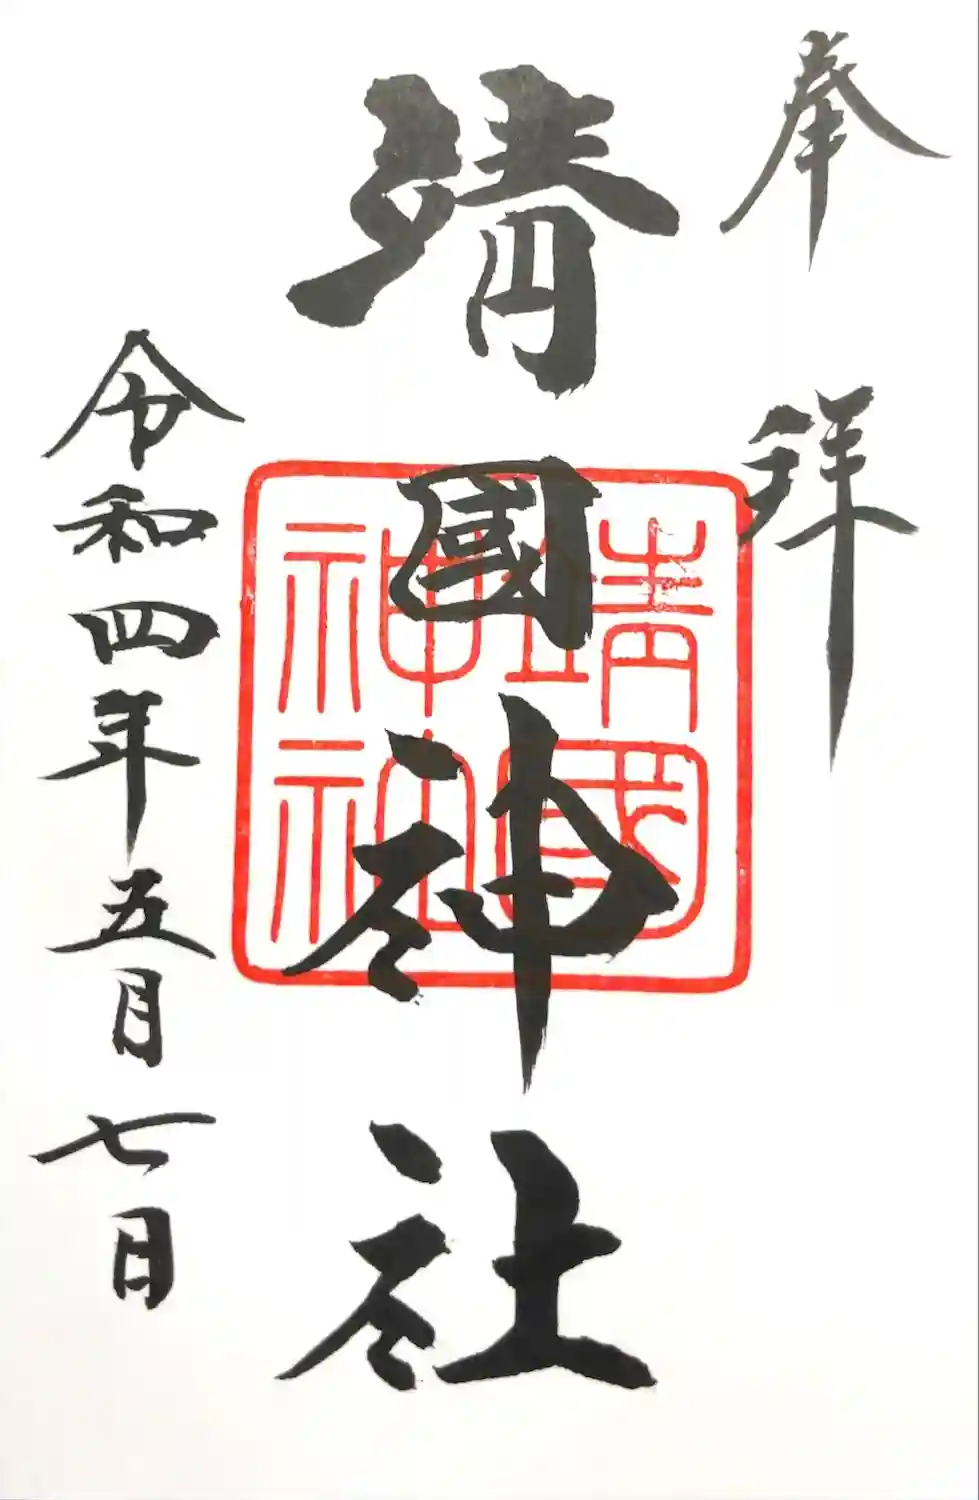 奉拝
靖國神社
靖國
神社
令和四年五月七日